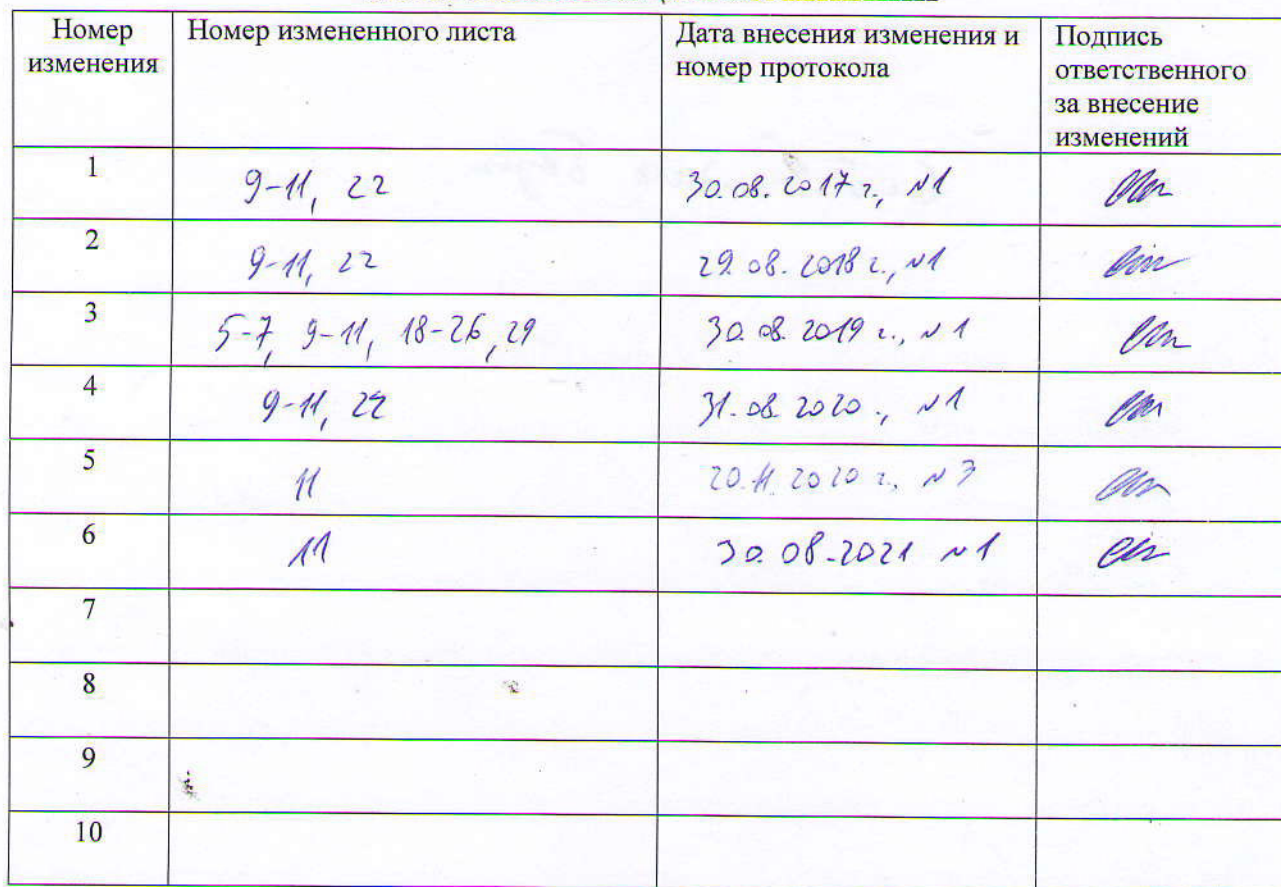 Номер изменения Номер измененного листа Дата внесения изменения и номер протокола Подпись ответственного за внесение изменений
1 9-11, 22 30.08.2017 г., №1
2 9-11, 22 29.08.2018 г., №1
3 5-7, 9-11, 18-26, 29 30.08.2019 г., №1
4 9-11, 22 31.08.2020 ., №1
5 11 20.11.2020 г., №3
6 11 30.08.2021 №1
7
8
9
10